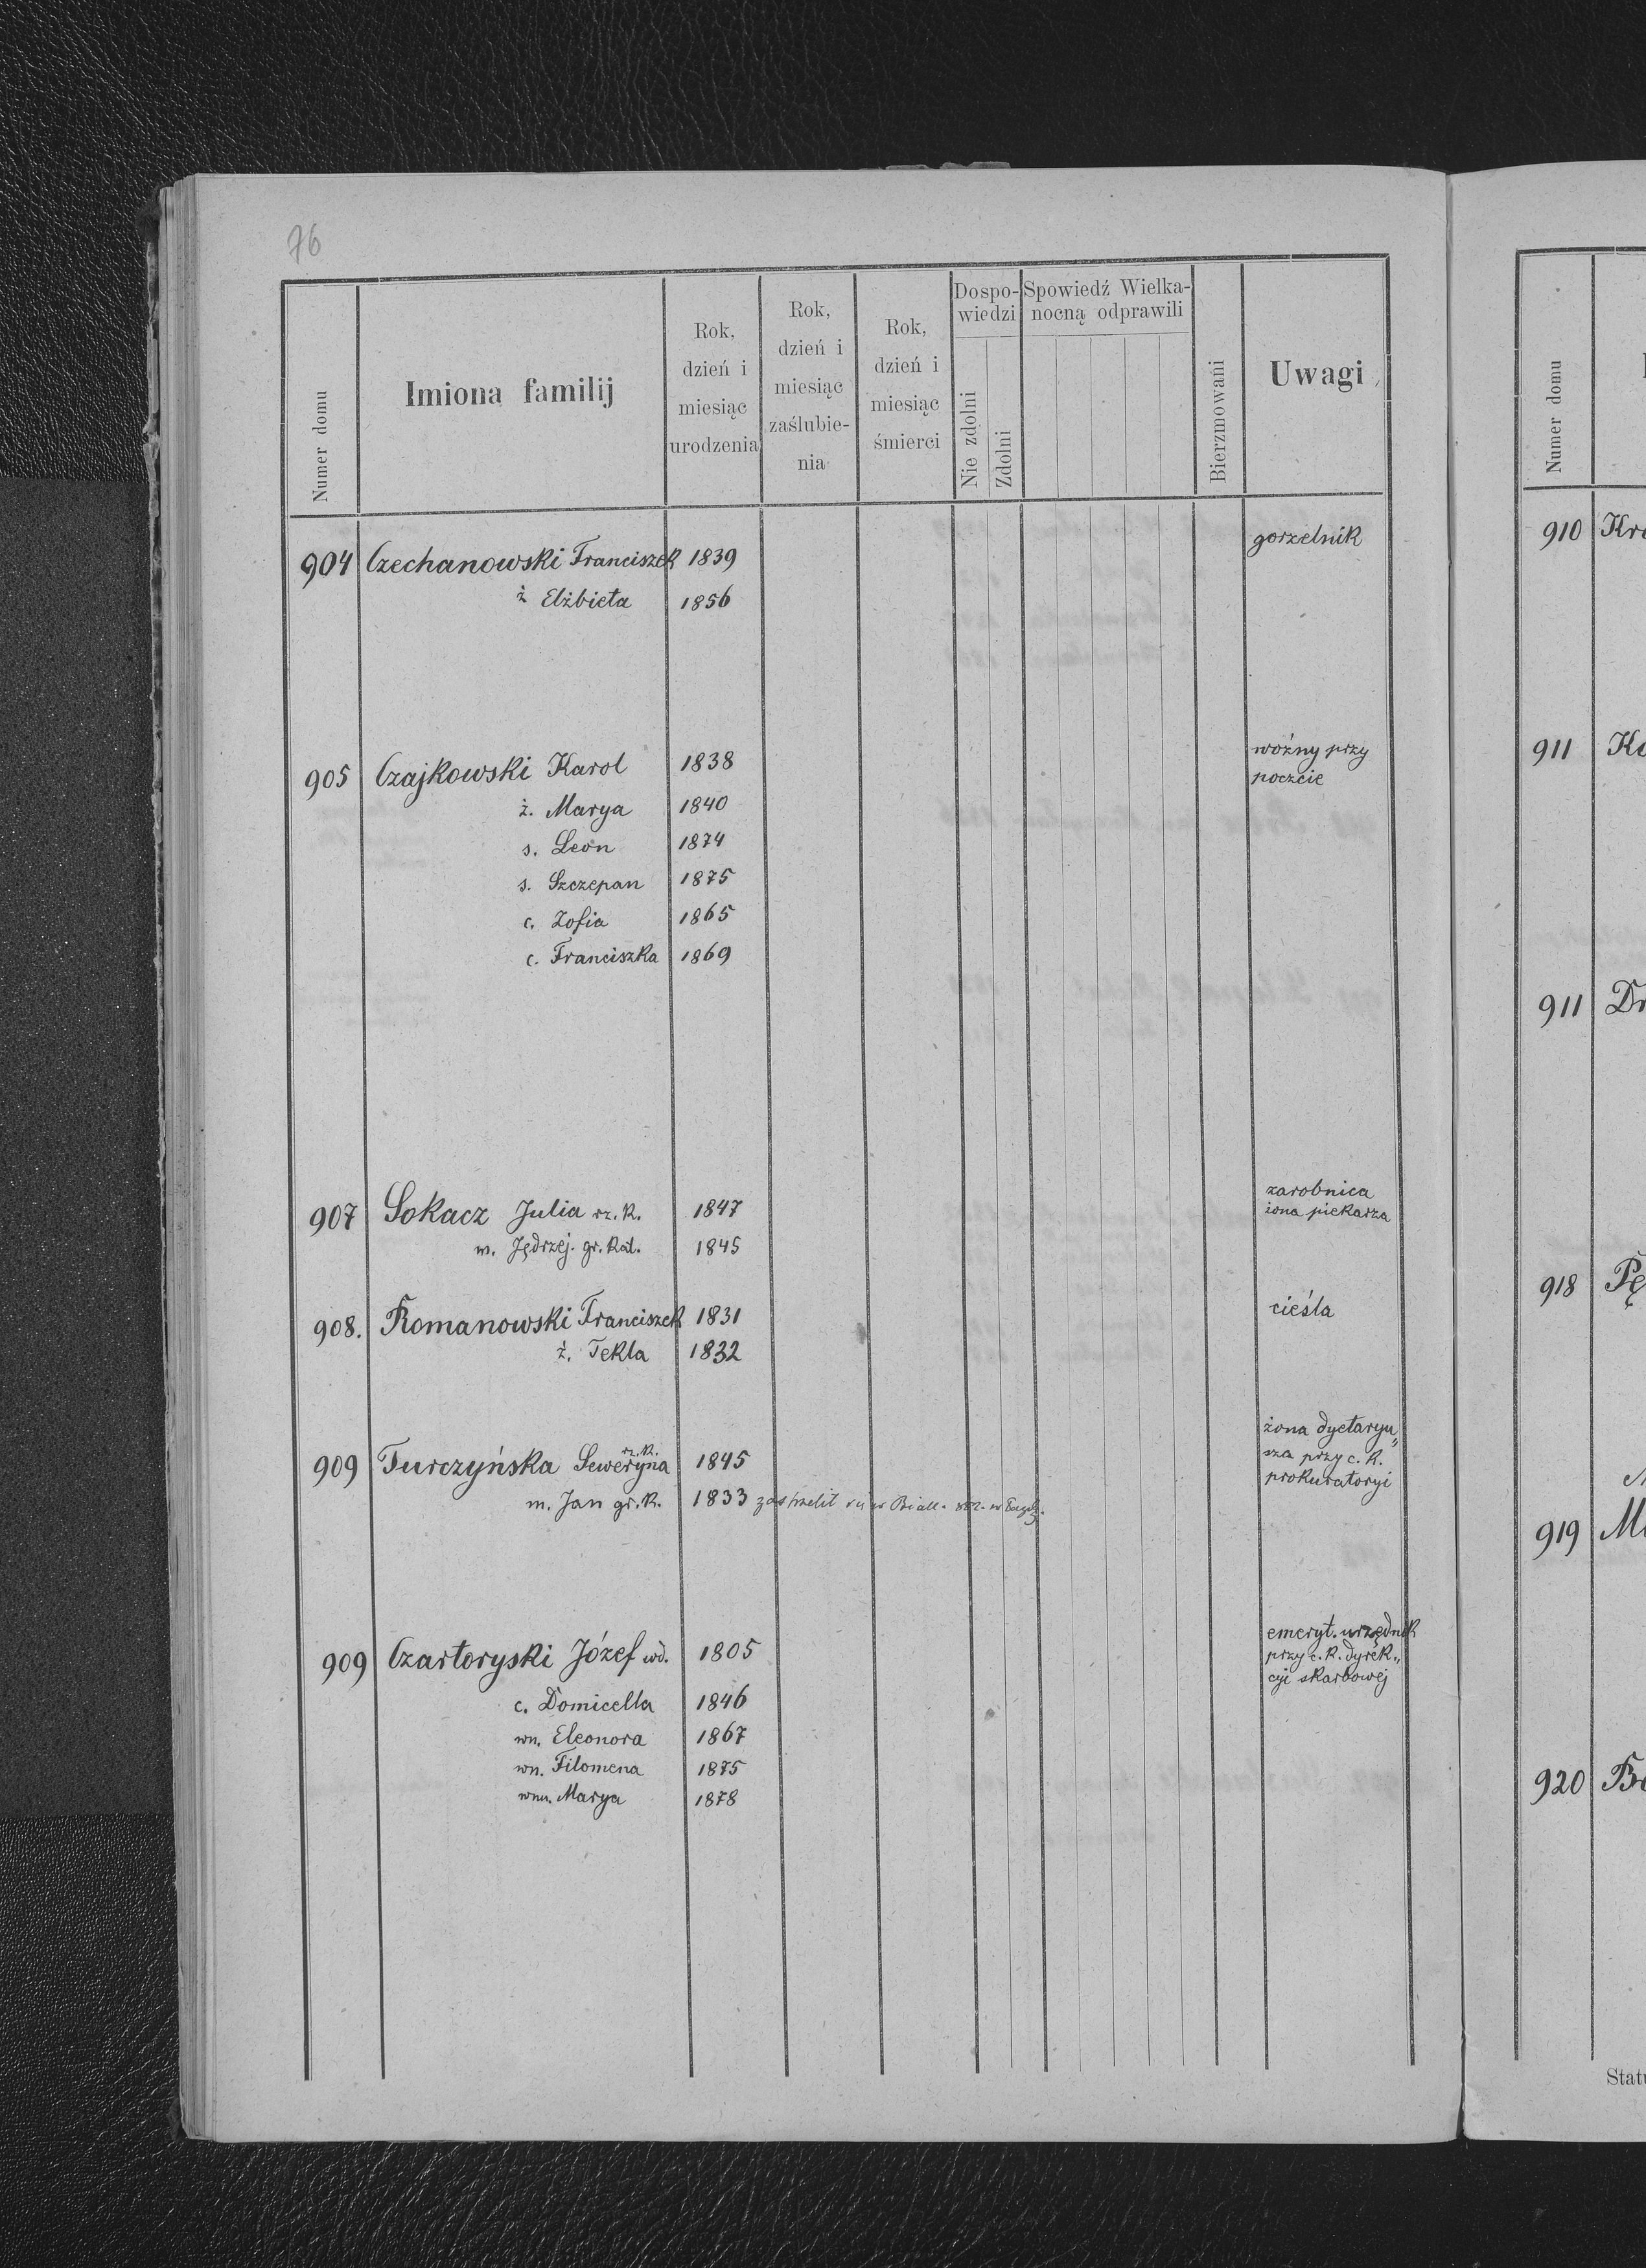 76
Numer domu
Imiona familij
Rok, dzień i miesiąc urodzenia
Rok, dzień i miesiąc zaślubie-nia
Rok, dzień i miesiąc śmierci
Dospo-wiedzi
Nie zdolni
Zdolni
Spowiedź Wielka-nocną odprawili
Bierzmowani
Uwagi
904 Czechanowski Franciszek 1839 gorzelnik
ż Elżbieta 1856
905 Czajkowski Karol 1838 woźny przy
poczcie
ż. Marya 1840
s. Leon 1874
s. Szczepan 1875
c. Zofia 1865
c. Franciszka 1869
907 Sokacz Julia rz. k. 1847 zarobnica
żona piekarza
m. Jędrzej. gr. kat. 1845
908. Romanowski Franciszek 1831 cieśla
ż. Tekla 1832
909 Turczyńska Seweryna rz. k. 1845 żona dyetaryu„
sza przy c. k.
prokuratoryi
m. Jan gr. k. 1833 zastrzelił się w
909 Czartoryski Józef wd. 1805 emeryt. urzędnik
przy c. k. dyrek„
cyi skarbowej
c. Domicella 1846
wn. Eleonora 1867
wn. Filomena 1875
wnu. Marya 1878
Numer domu
910 Kr
911
911 Dr
918 Pę
919
920
Stat